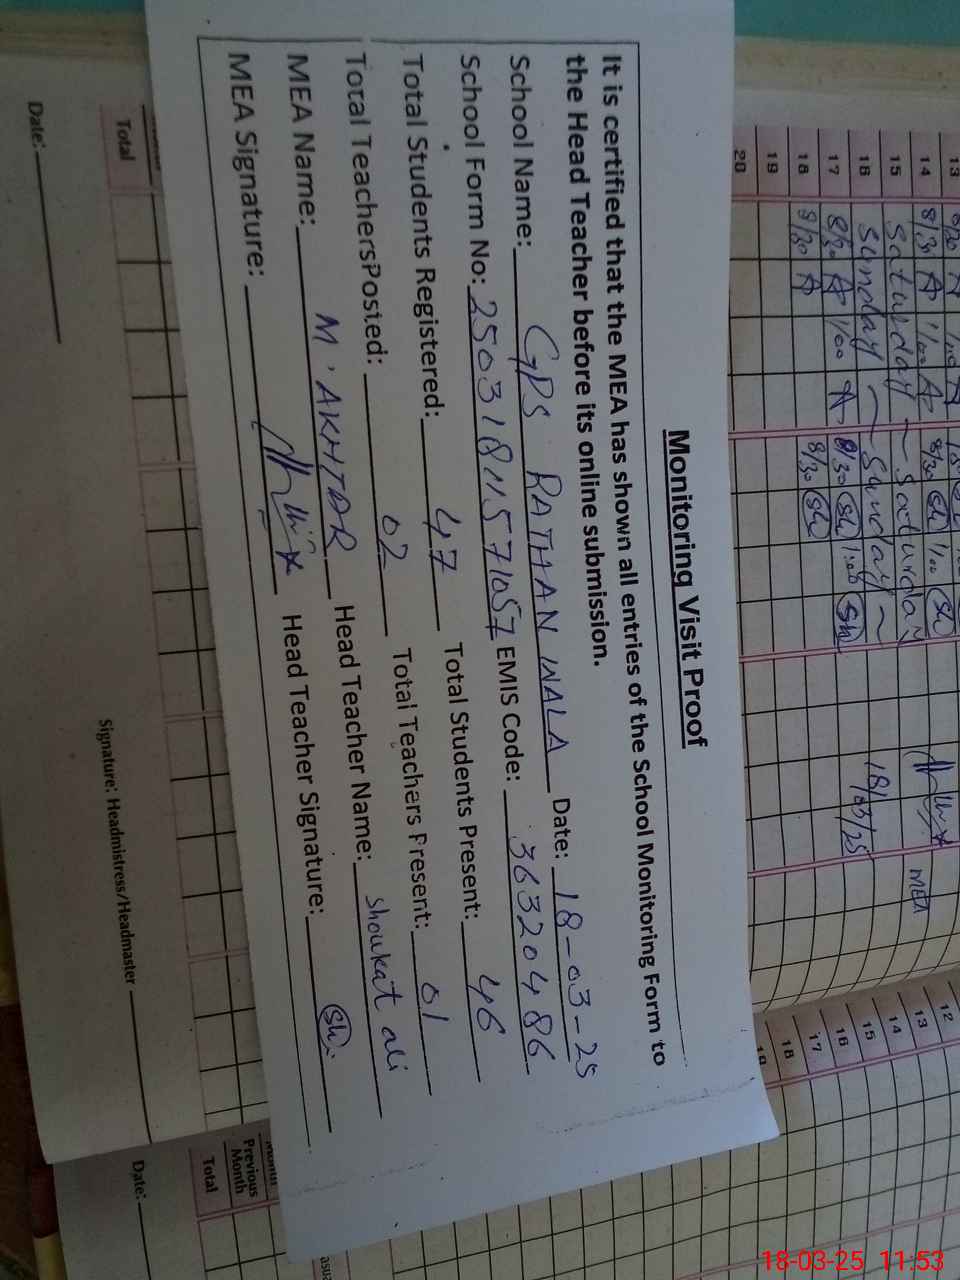 Monitoring Visit Proof
It is certified that the MEA has shown all entries of the School Monitoring Form to
the Head Teacher before its online submission.
School Name: GPS RATHAN WALA Date: 18-03-25
School Form No: EMIS Code: 36320486
Total Students Registered: 47 Total Students Present: 46
Total TeachersPosted: 02 Total Teachers Present: 01
MEA Name: M. AKHTAR Head Teacher Name: Shoukat ali
MEA Signature: Head Teacher Signature: Sh.
13
14 8/30 A 1/00 A 8/30 Sh 1/00 Sh
15 Saturday ~ Saturday
16 Sunday ~ Sunday ~
17 8/30 A 1/00 A 8/30 Sh 1:00 Sh
18 8/30 A 8/30 Sh
19
20
MEA
18/03/25
12
13
14
15
16
17
18
19
Total
Signature: Headmistress/Headmaster
Date:
Previous
Month
Total
Date:
18-03-25 11:53